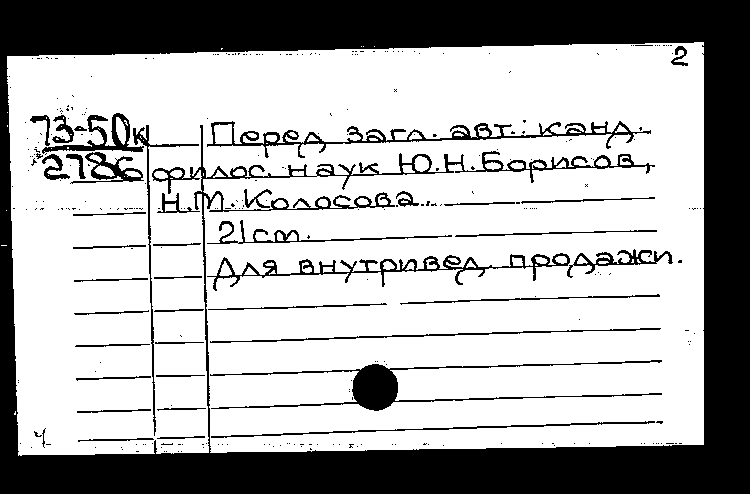 2
73-50к Перед загл. авт.: канд.
2786 филос. наук Ю.Н. Борисов,
Н.М. Колосова.
21 см.
Для внутривед. продажи.